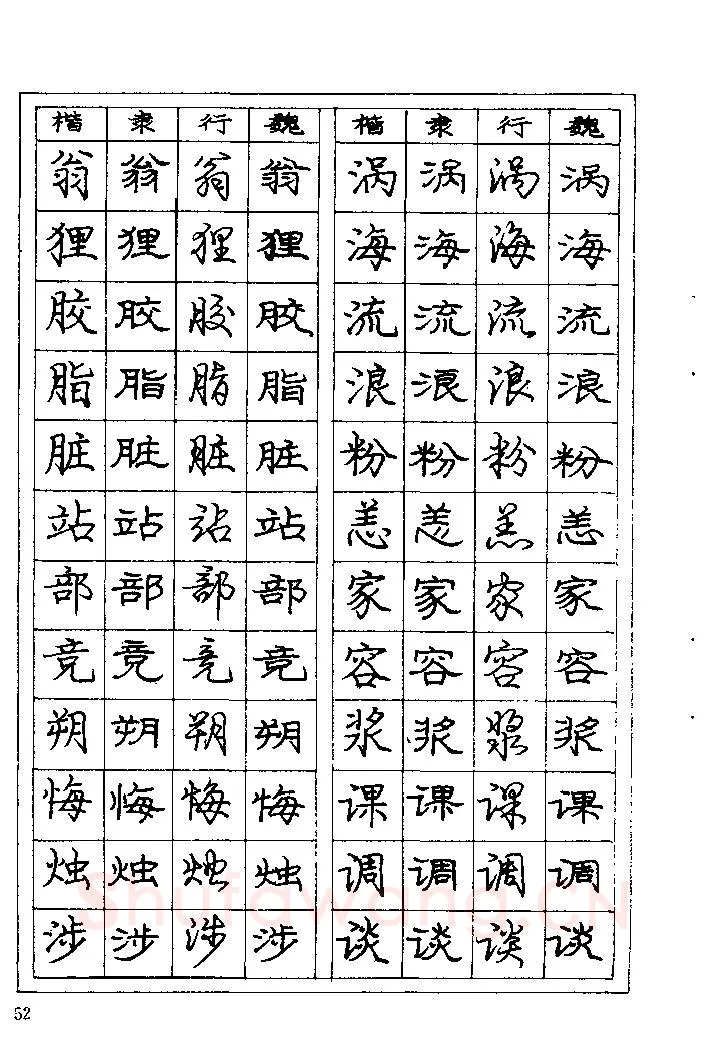 楷 隶 行 魏 楷 隶 行 魏
翁 翁 翁 翁 涡 涡 涡 涡
狸 狸 狸 狸 海 海 海 海
胶 胶 胶 胶 流 流 流 流
脂 脂 脂 脂 浪 浪 浪 浪
脏 脏 脏 脏 粉 粉 粉 粉
站 站 站 站 恙 恙 恙 恙
部 部 部 部 家 家 家 家
竞 竞 竞 竞 容 容 容 容
朔 朔 朔 朔 浆 浆 浆 浆
悔 悔 悔 悔 课 课 课 课
烛 烛 烛 烛 调 调 调 调
Shufawang.CN
涉 涉 涉 涉 谈 谈 谈 谈
52